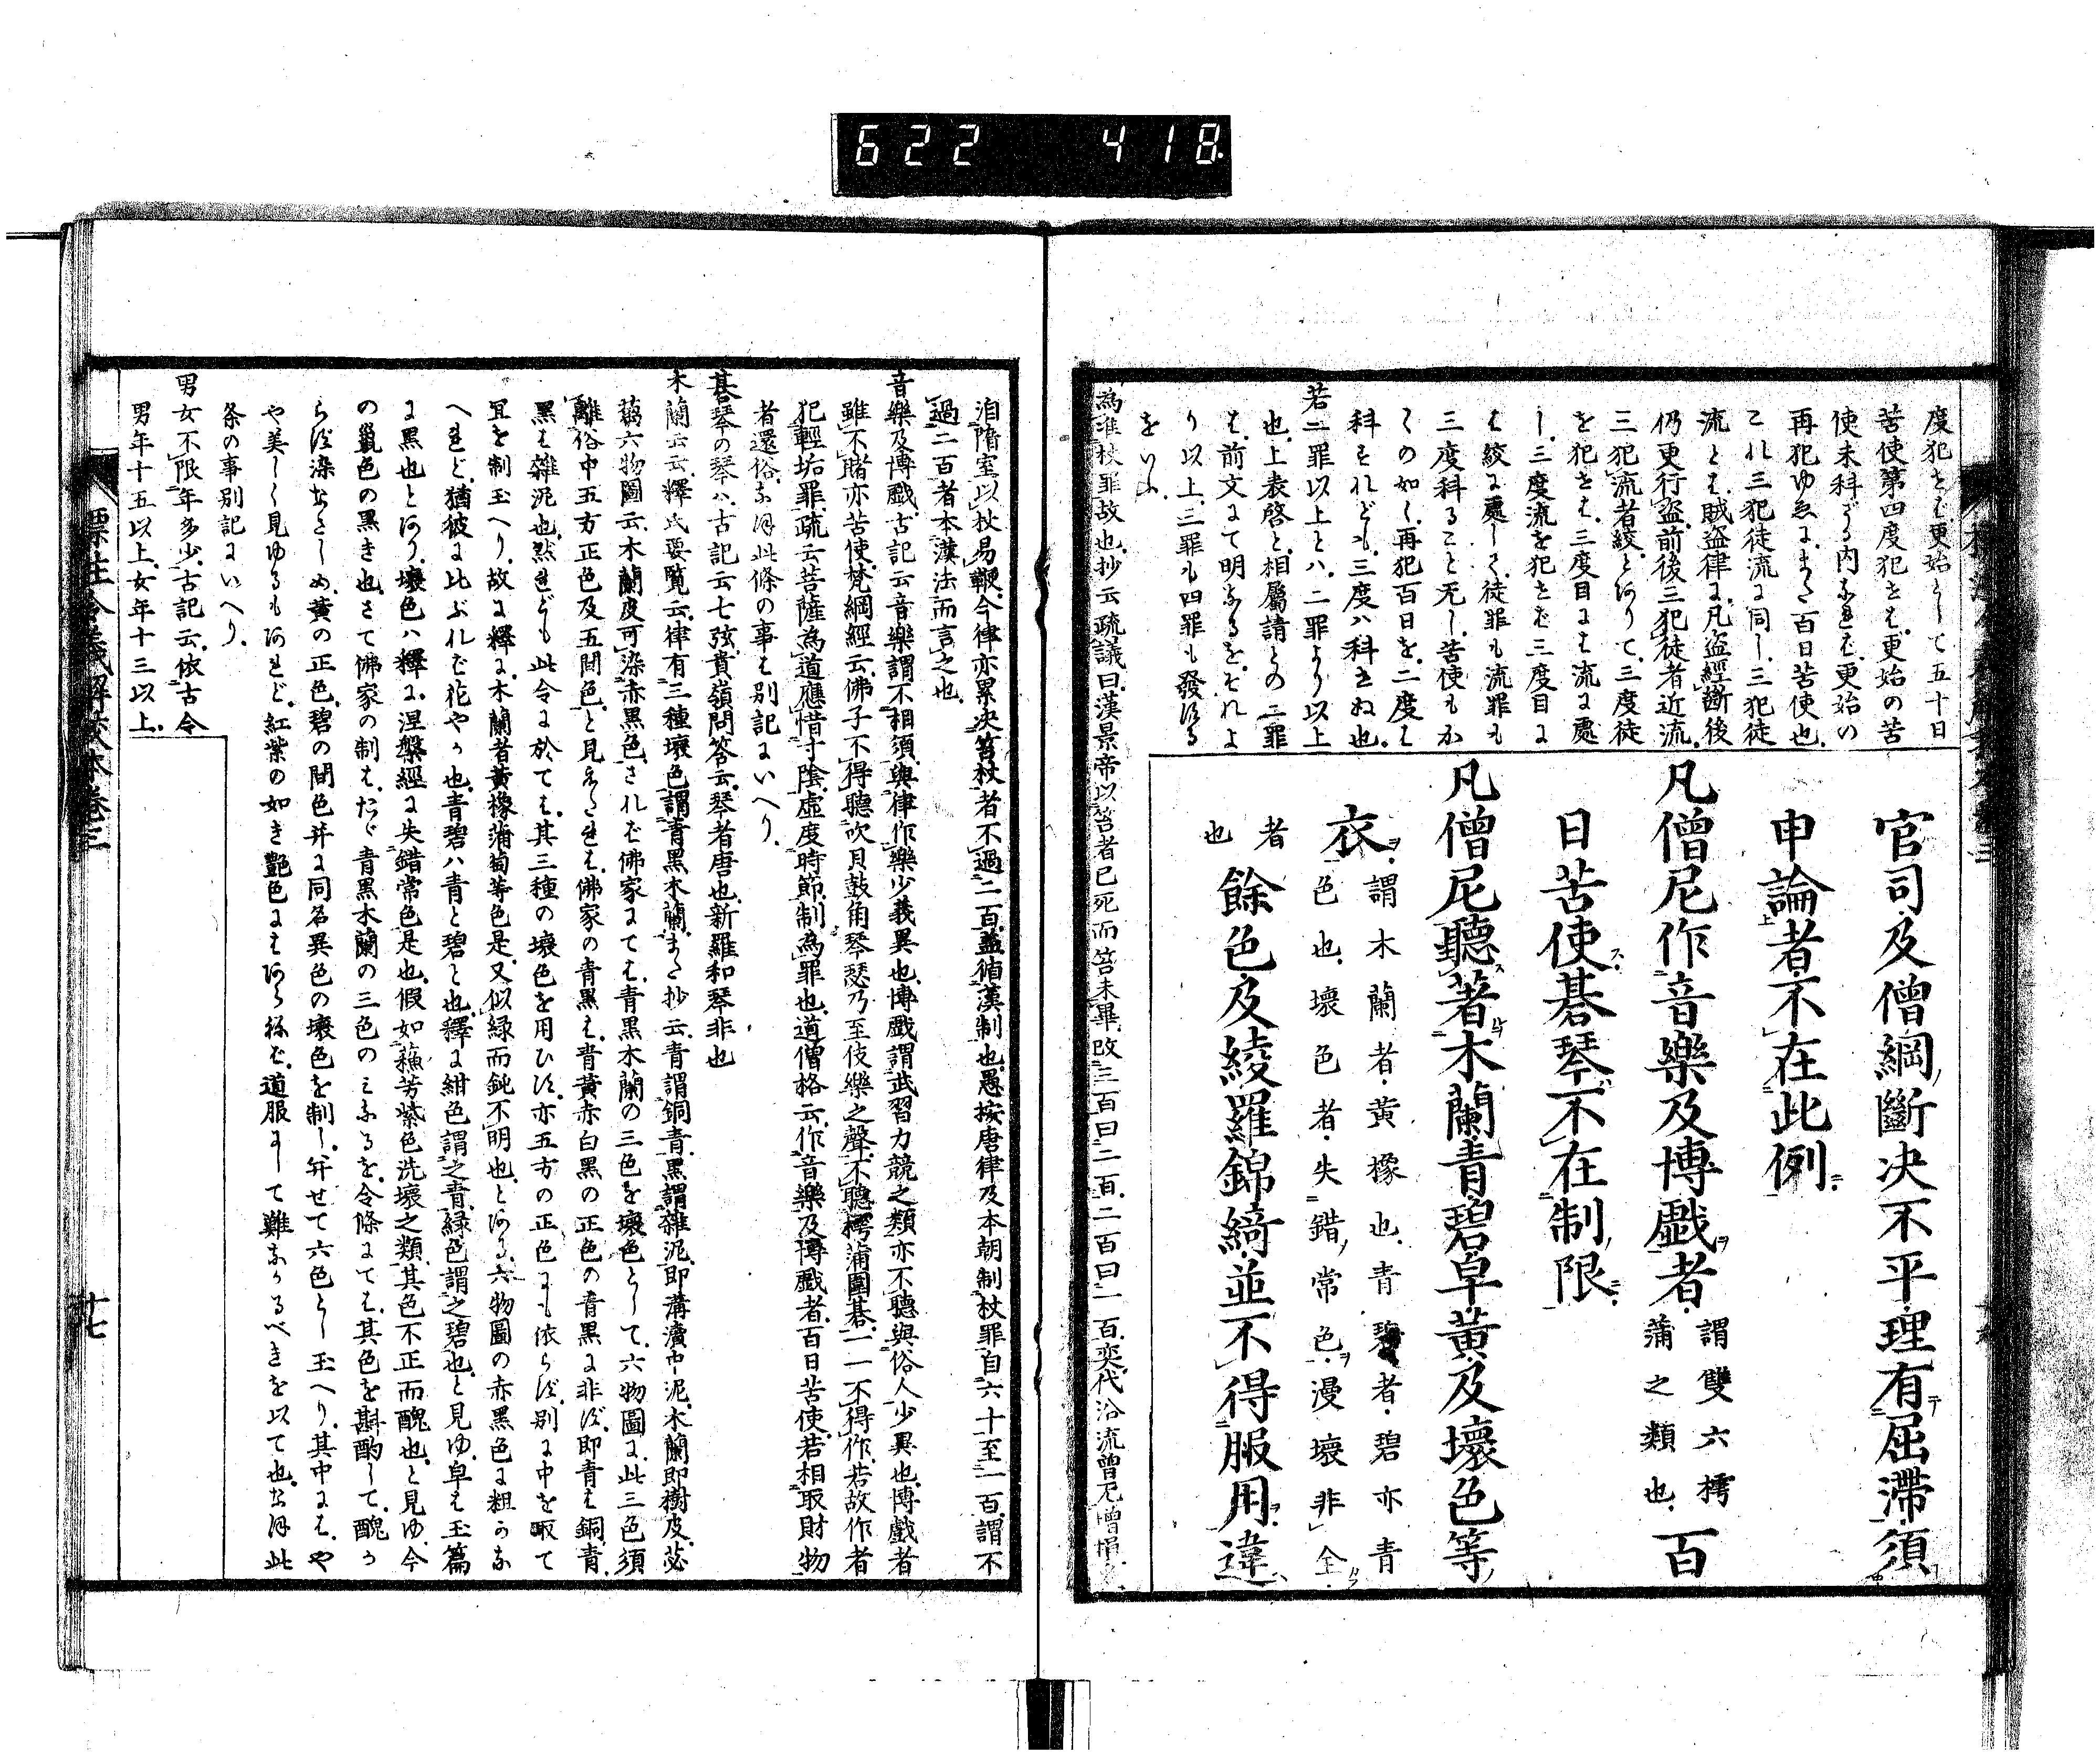 622 418
度犯をば更始として五十日
苦使第四度犯をば更始の苦
使未科ざる内なれば更始の
再犯ゆゑにまた百日苦使也
これ三犯徒流に同し三犯徒
流とは賊盗律に凡盗經斷後
仍更行盗前後三犯徒者近流
三犯流者絞とありて三度徒
を犯をば三度目には流に處
し三度流を犯をば三度目に
は絞に處して徒罪も流罪も
三度科ること无し苦使もか
くの如し再犯百日を二度は
科すれども三度ハ科せぬ也
若二罪以上とハ二罪より以上
也上表啓と相屬請との二罪
は前文にて明なるをそれよ
り以上三罪も四罪も發ほる
をいふ
官司及僧綱斷決不平理有屈滯須
申論者不在此例
凡僧尼作音樂及博戲者謂雙六樗
蒲之類也百
日苦使碁琴不在制限
凡僧尼聽著木蘭青碧皁黃及壞色等
衣謂木蘭者黃橡也青碧者碧亦青
色也壞色者失錯常色漫壞非全
者
也餘色及綾羅錦綺並不得服用違
為准杖罪故也抄云疏議曰漢景帝以笞者已死而笞未畢改三百曰二百二百曰一百奕代沿流曾无增損
洎隋室以杖易鞭今律亦累決笞杖者不過二百蓋循漢制也愚按唐律及本朝制杖罪自六十至一百謂不
過二百者本漢法而言之也
音樂及博戲古記云音樂謂不相須與律作樂少義異也博戲謂武習力競之類亦不聽與俗人少異也博戲者
雖不賭亦苦使梵綱經云佛子不得聽吹貝鼓角琴瑟乃至伎樂之聲不聽樗蒲圍碁一一不得作若故作者
犯輕垢罪疏云菩薩為道應惜寸陰虛度時節制為罪也道僧格云作音樂及博戲者百日苦使若相取財物
者還俗なほ此條の事は別記にいへり
碁琴の琴ハ古記云七弦貴嶺問答云琴者唐也新羅和琴非也
木蘭云云釋氏要覧云律有三種壞色謂青黑木蘭また抄云青謂銅青黑謂雜泥即溝瀆中泥木蘭即樹皮苾
蒭六物圖云木蘭皮可染赤黑色されば佛家にては青黑木蘭の三色を壞色として六物圖に此三色須
離俗中五方正色及五間色と見またれば佛家の青黑は青黃赤白黑の正色の青黑に非ず即青は銅青
黑は雜泥也然れども此令に於ては其三種の壞色を用ひず亦五方の正色にも依らず別に中を取て
冝を制玉へり故に釋に木蘭者黃橡蒲萄等色是又似緑而鈍不明也とある六物圖の赤黑色に粗かな
へれど猶彼に比ぶれば花やか也青碧ハ青と碧と也釋に紺色謂之青緑色謂之碧也と見ゆ皁は玉篇
に黑也とあり壞色ハ釋に涅槃經に失錯常色是也假如蘓芳紫色洗壞之類其色不正而醜也と見ゆ今
の鼠色の黑き也さて佛家の制はたゞ青黑木蘭の三色のみなるを令條にては其色を斟酌して醜か
らず染なさしめ黃の正色碧の間色并に同名異色の壞色を制し并せて六色とし玉へり其中にはや
や美しく見ゆるもあれど紅紫の如き艷色にはあらねば道服にして難なかるべきを以て也なほ此
条の事別記にいへり
男女不限年多少古記云依古令
男年十五以上女年十三以上
標注令義解校本卷三
廿七